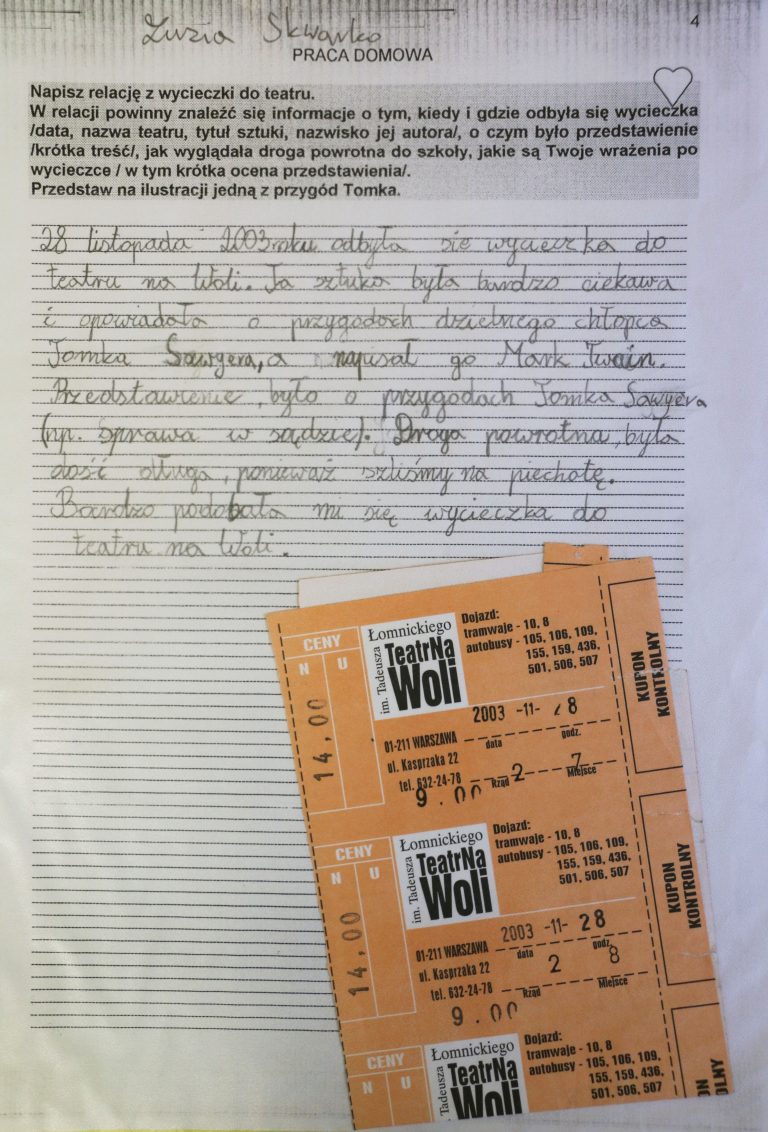 Zuzia Skwarko
4
PRACA DOMOWA
Napisz relację z wycieczki do teatru.
W relacji powinny znaleźć się informacje o tym, kiedy i gdzie odbyła się wycieczka
/data, nazwa teatru, tytuł sztuki, nazwisko jej autora/, o czym było przedstawienie
/krótka treść/, jak wyglądała droga powrotna do szkoły, jakie są Twoje wrażenia po
wycieczce / w tym krótka ocena przedstawienia/.
Przedstaw na ilustracji jedną z przygód Tomka.
28 listopada 2003 roku odbyła sie wycieczka do
teatru na Woli. Ta sztuka była bardzo ciekawa
i opowiadała o przygodach dzielnego chłopca
Tomka Sawyera, a napisał go Mark Twain.
Przedstawienie, było o przygodach Tomka Sawyera
(np. sprawa w sądzie). Droga powrotna, była
dość długa, ponieważ szliśmy na piechotę.
Bardzo podobała mi się wycieczka do
teatru na Woli.
CENY
N U
14,00
im. Tadeusza
Łomnickiego
TeatrNa
Woli
Dojazd:
tramwaje - 10, 8
autobusy - 105, 106, 109,
155, 159, 436,
501, 506, 507
2003 -11- 8
data godz.
01-211 WARSZAWA
ul. Kasprzaka 22
tel. 632-24-78
2 7
Rząd Miejsce
9.00
KUPON
KONTROLNY
CENY
N U
14,00
im. Tadeusza
Łomnickiego
TeatrNa
Woli
Dojazd:
tramwaje - 10, 8
autobusy - 105, 106, 109,
155, 159, 436,
501, 506, 507
2003 -11- 28
data godz.
01-211 WARSZAWA
ul. Kasprzaka 22
tel. 632-24-78
2 8
Rząd Miejsce
9.00
KUPON
KONTROLNY
CENY
N U
im. Tadeusza
Łomnickiego
TeatrNa
Woli
Dojazd:
tramwaje - 10, 8
autobusy - 105, 106, 109,
155, 159, 436,
501, 506, 507
ON
OLNY